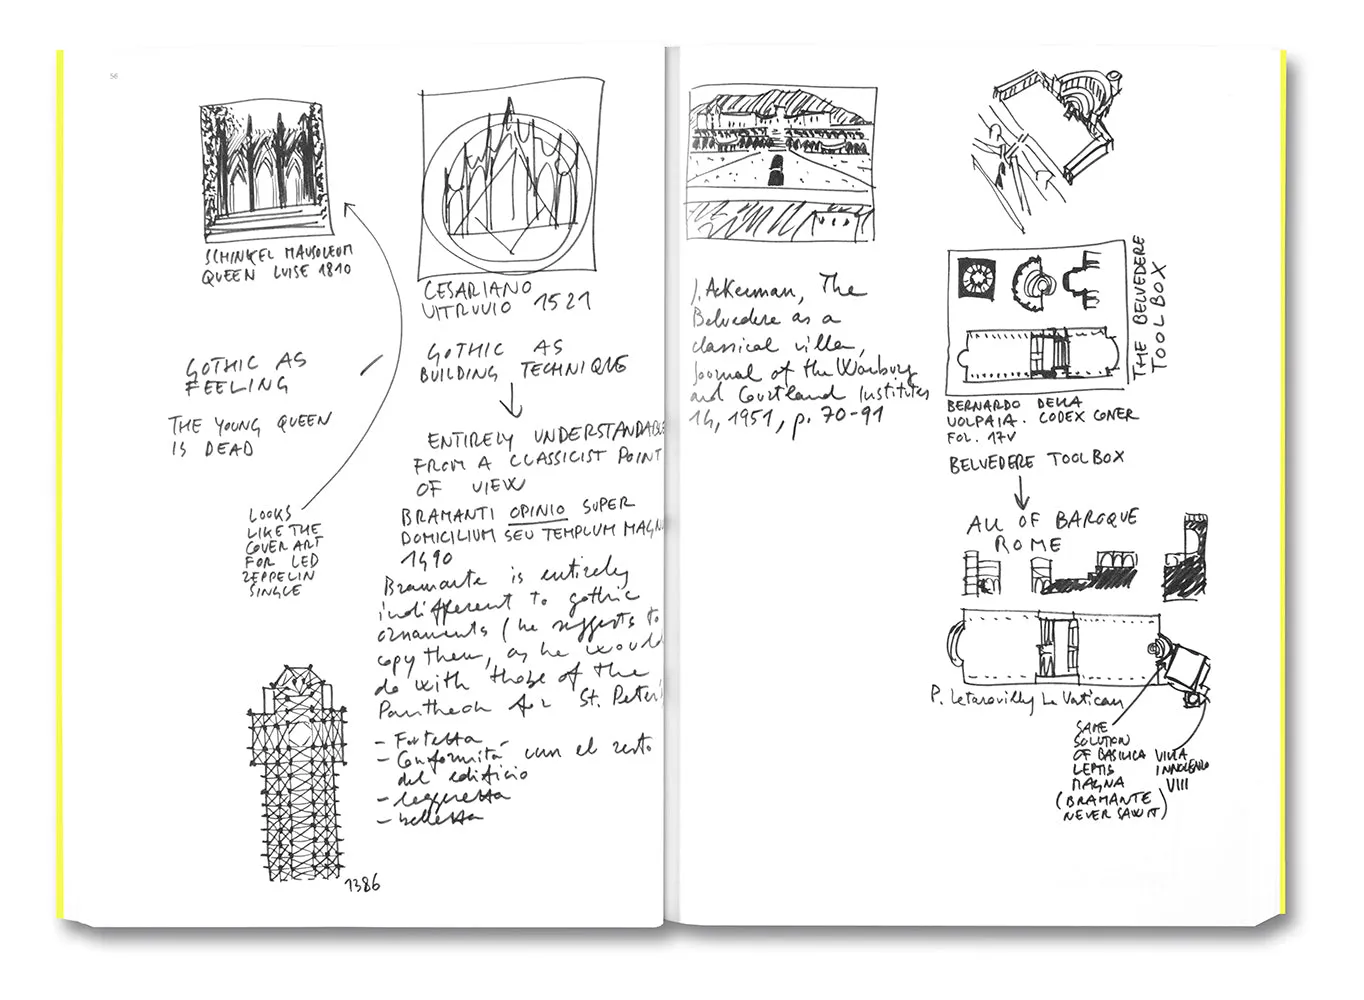 56
SCHINKEL MAUSOLEUM
QUEEN LUISE 1810
GOTHIC AS
FEELING
THE YOUNG QUEEN
IS DEAD
LOOKS
LIKE THE
COVER ART
FOR LED
ZEPPELIN
SINGLE
1386
CESARIANO
VITRUVIO 1521
GOTHIC AS
BUILDING TECHNIQUE
ENTIRELY UNDERSTANDABLE
FROM A CLASSICIST POINT
OF VIEW
BRAMANTI OPINIO SUPER
DOMICILIUM SEU TEMPLUM MAGN
1490
Bramante is entirely
indifferent to gothic
ornaments (he suggests to
copy them, as he would
do with those of the
Pantheon for St. Peter's
- Fortezza -
- Conformità cum el resto
del edificio
- leggerezza
- bellezza
J. Ackerman, The
Belvedere as a
classical villa,
Journal of the Warburg
and Courtland Institutes
14, 1951, p. 70-91
THE BELVEDERE
TOOLBOX
BERNARDO DELLA
VOLPAIA. CODEX CONER
FOL. 17V
BELVEDERE TOOLBOX
ALL OF BAROQUE
ROME
P. Letarouilly Le Vatican
SAME
SOLUTION
OF BASILICA
LEPTIS
MAGNA
(BRAMANTE
NEVER SAW IT)
VILLA
INNOCENZO
VIII